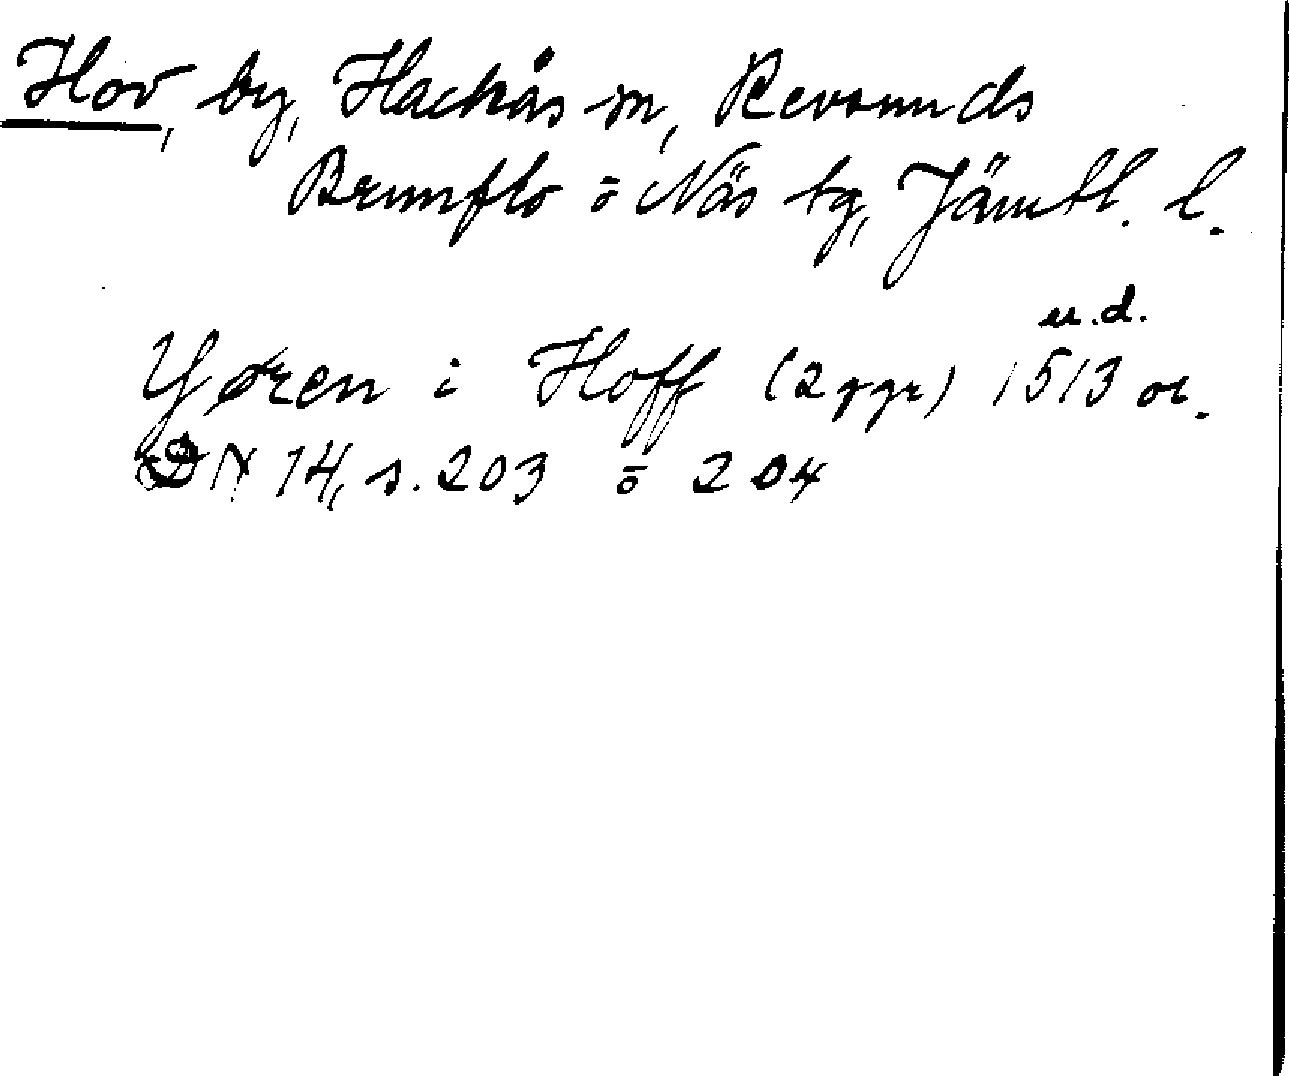 Hov, by, Hackås sn, Revsunds
Brunflo ō Näs tg, Jämtl. l.
u.d.
Yøren i Hoff (2 ggr) 1513 or.
DN 14, s. 203 ō 204